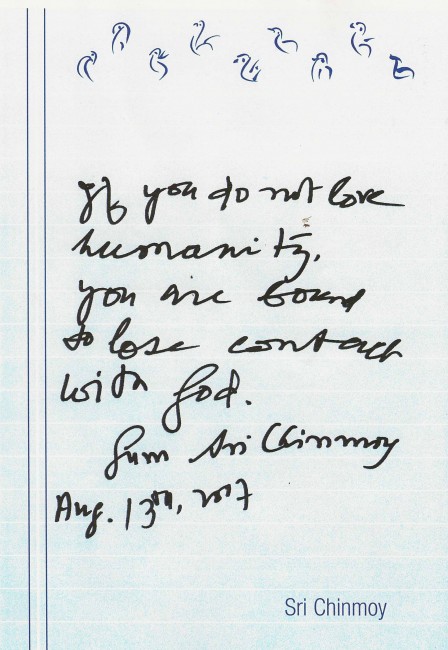 If you do not love
humanity,
you are bound
to lose contact
with God.
Guru Sri Chinmoy
Aug. 13th, 2007
Sri Chinmoy